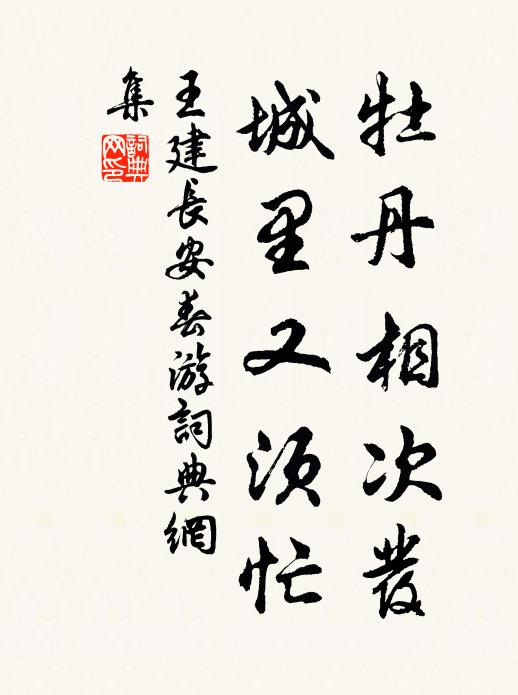 牡丹相次發
城里又須忙
王建長安春游詞典網
集
詞典網印